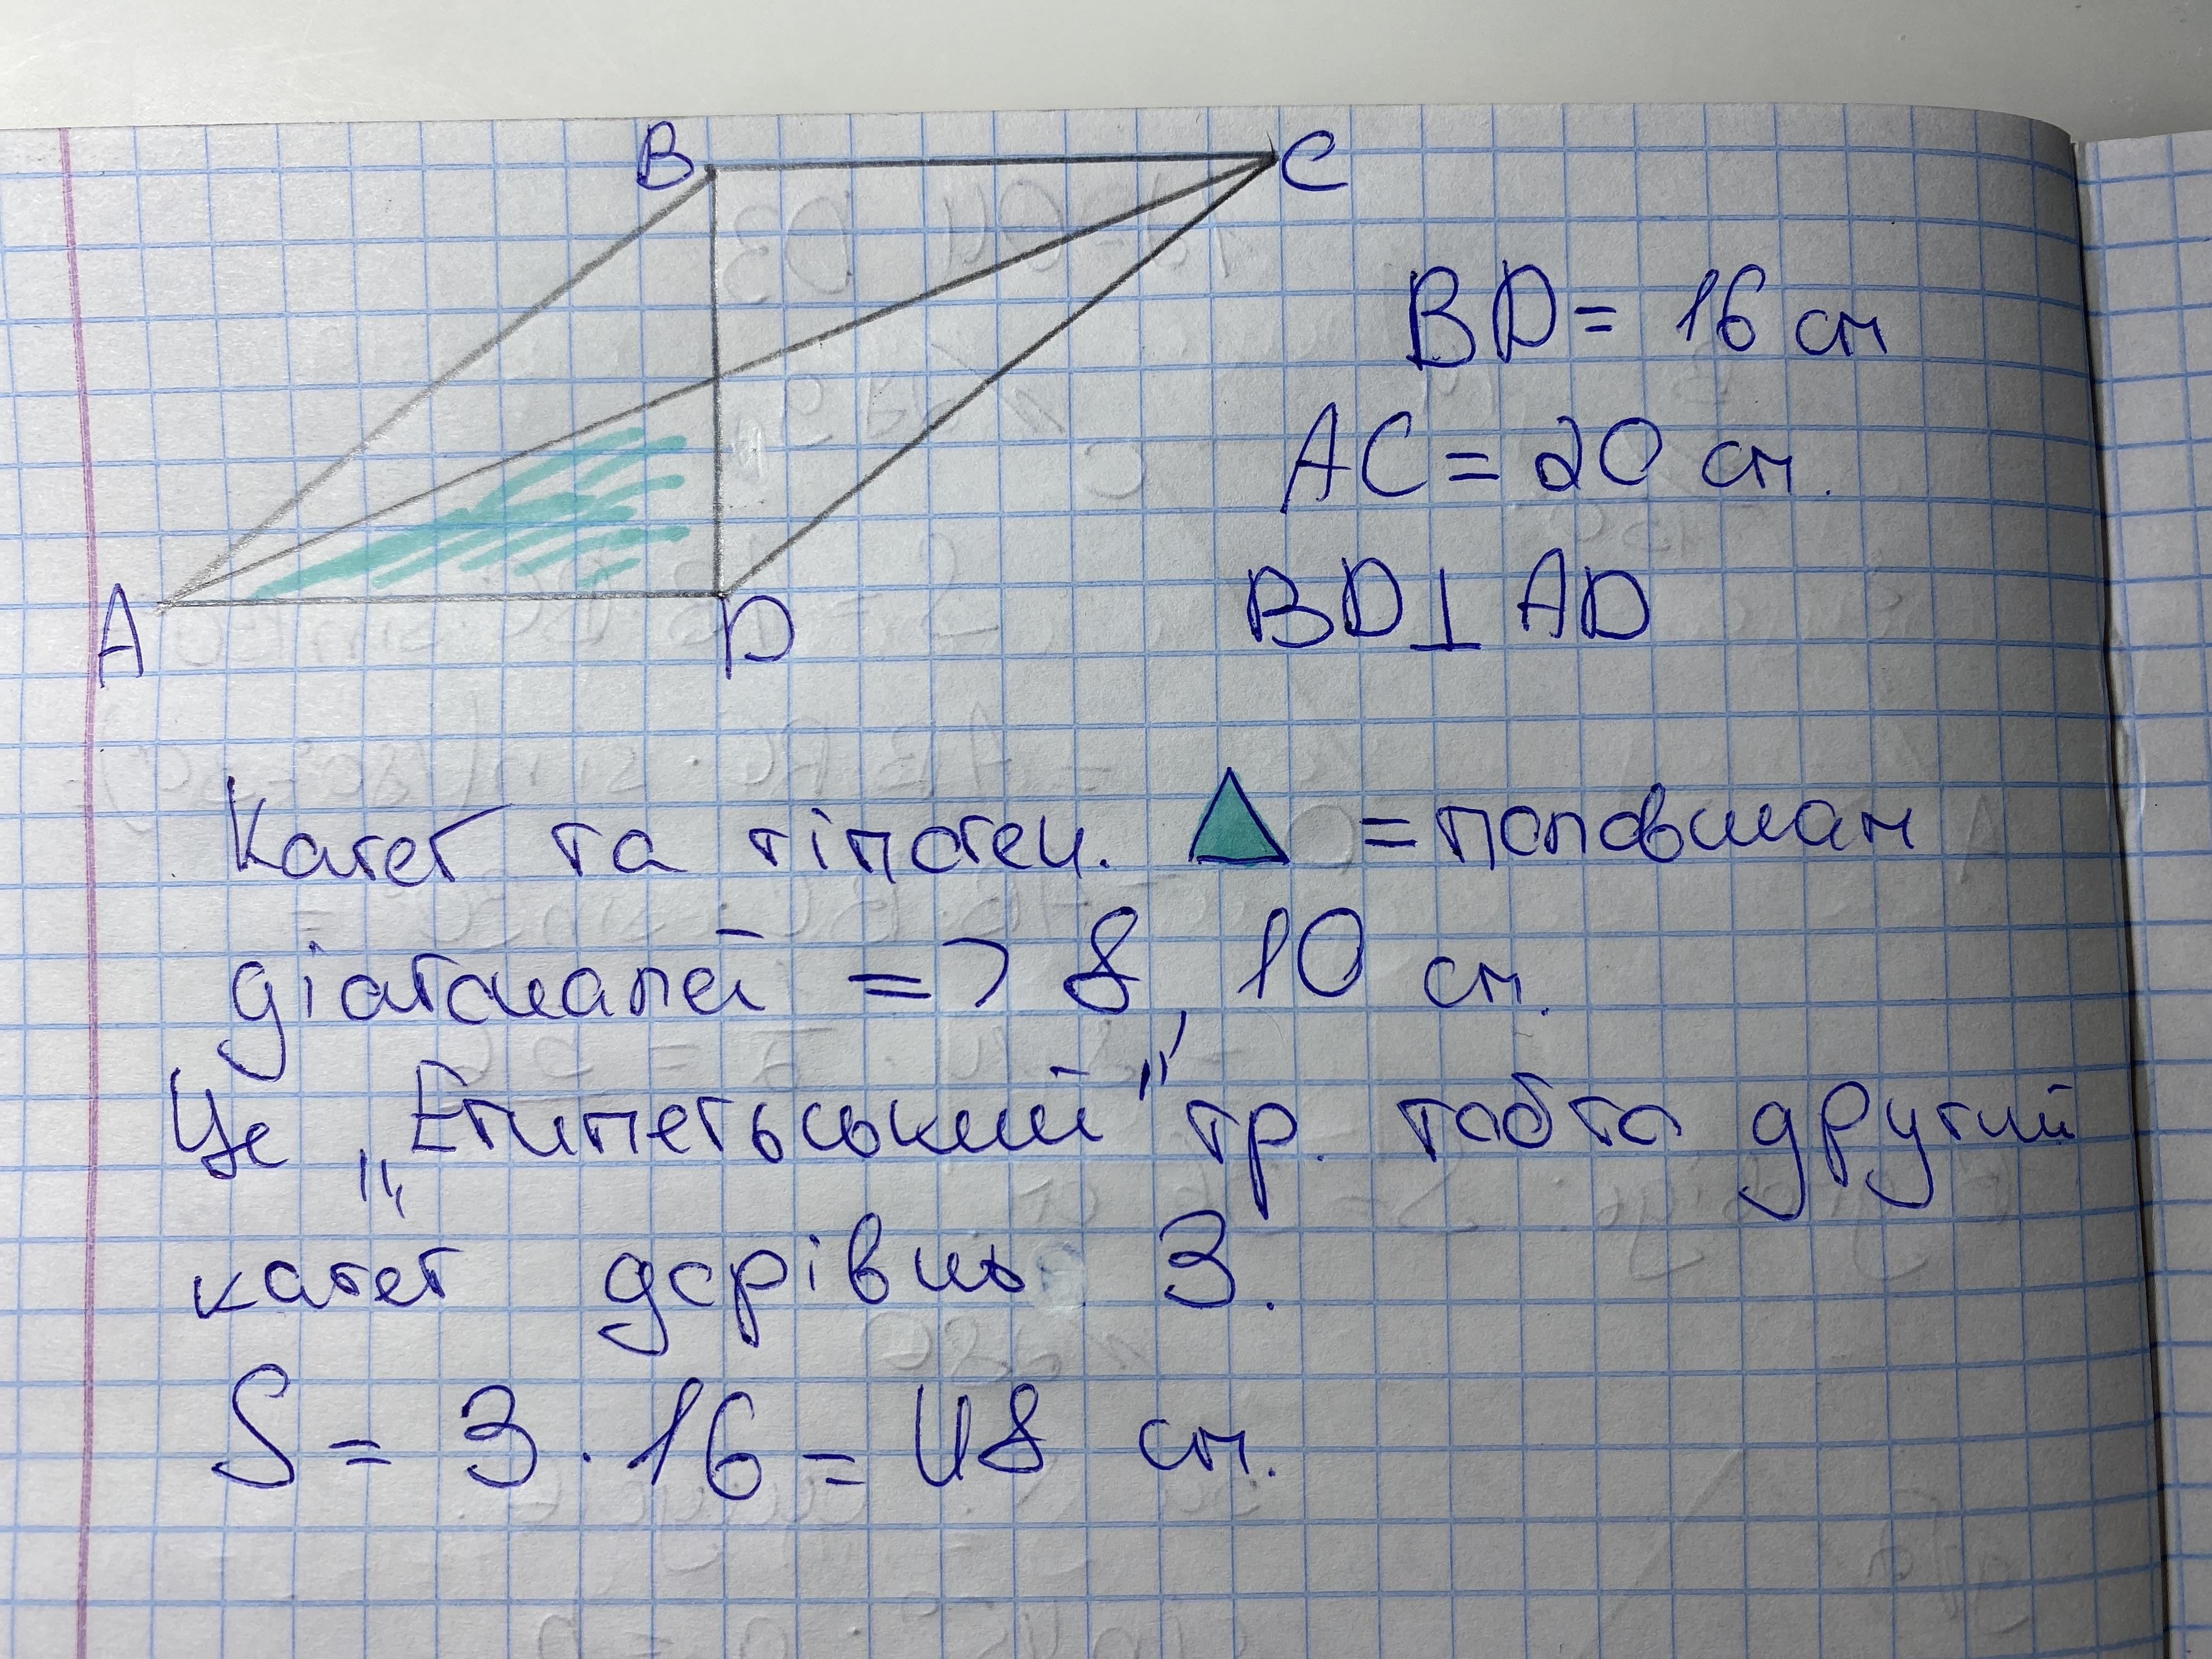 B C
A D
BD = 16 см
AC = 20 см.
BD ⊥ AD
Катет та гіпотен. = половинам
діагоналей => 8, 10 см.
Це „Египетьський” тр. тобто другий
катет дорівнь 3.
S = 3 · 16 = 48 см.